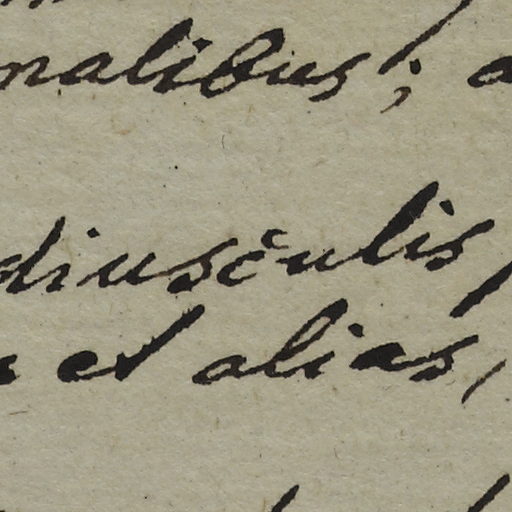 nalibus; a
diusculis,
et alias,